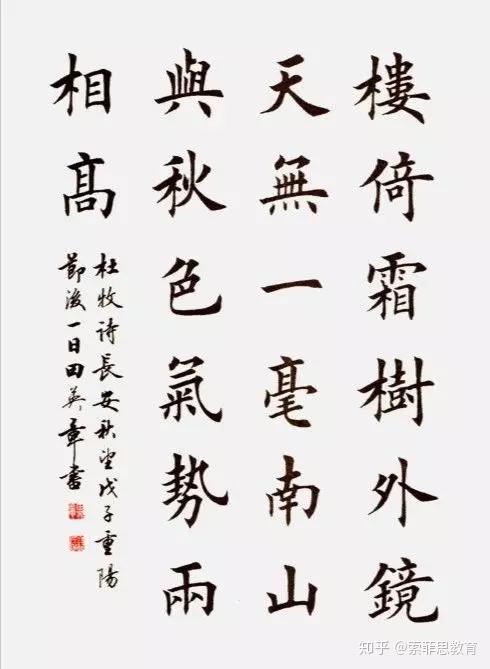 樓倚霜樹外鏡
天無一毫南山
與秋色氣勢兩
相高
杜牧诗長安秋望戊子重陽
節後一日田英章書
知乎 @索菲思教育